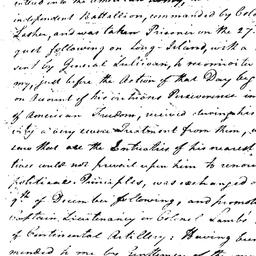 independent Battallion, commanded by Colo
Lasher, and was taken Prisoner on the 27
gust following on Long-Island, with a
sent by General Sulivan, to reconnoitre
my, just before the Action of that Day beg
on Account of his virtuous Perseverance in
of American Freedom, received
a very severe Treatment from them, a
even that all the Entreaties of his nearest
tives could not prevail upon him to renou
political Principles, was exchanged
9th of December following, and promot
Captain Lieutenancy in Colonel Lambs
of Continental Artillery; Having been
mended to me by Gentlemen of the